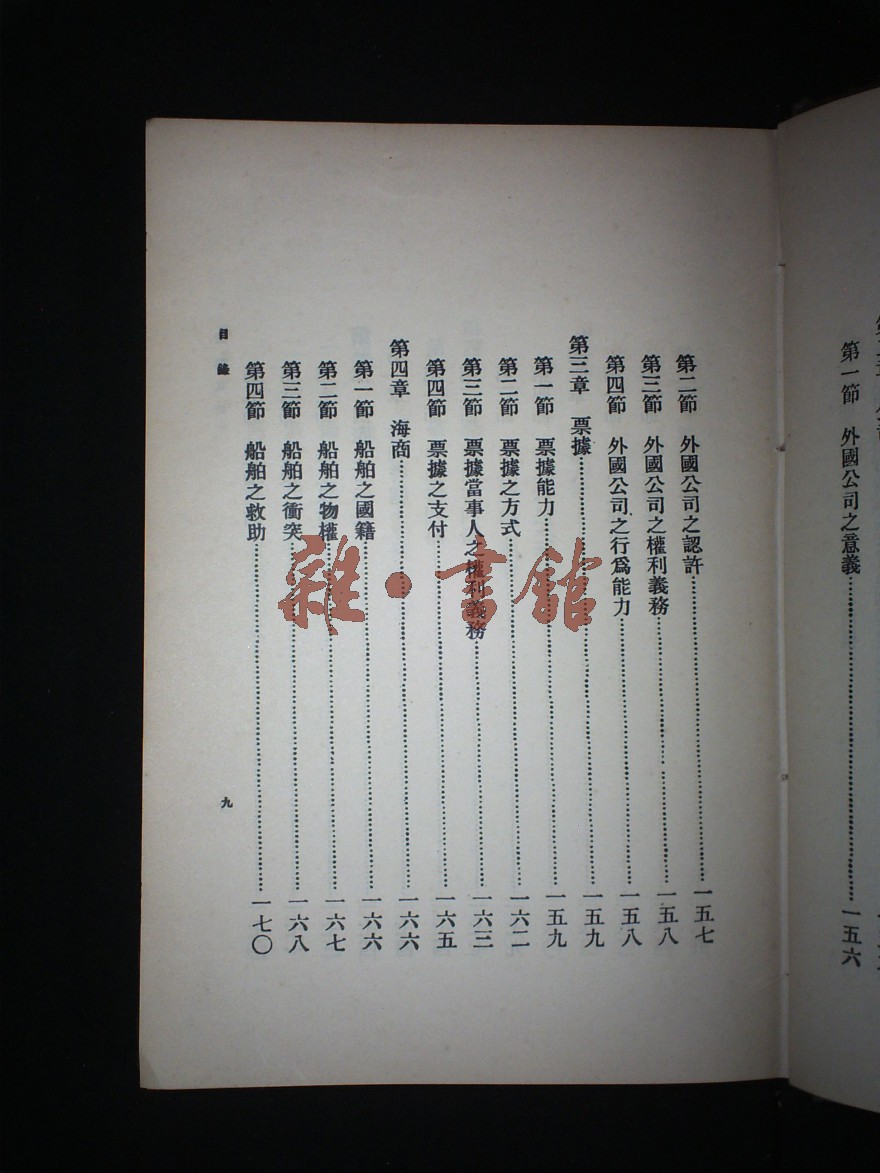 第一節　外國公司之意義……………………一五六
第二節　外國公司之認許……………………一五七
第三節　外國公司之權利義務……………………一五八
第四節　外國公司之行爲能力……………………一五八
第三章　票據……………………一五九
第一節　票據能力……………………一五九
第二節　票據之方式……………………一六二
第三節　票據當事人之權利義務……………………一六三
第四節　票據之支付……………………一六五
第四章　海商……………………一六六
第一節　船舶之國籍……………………一六六
第二節　船舶之物權……………………一六七
第三節　船舶之衝突……………………一六八
第四節　船舶之救助……………………一七〇
目錄
九
雜·書館